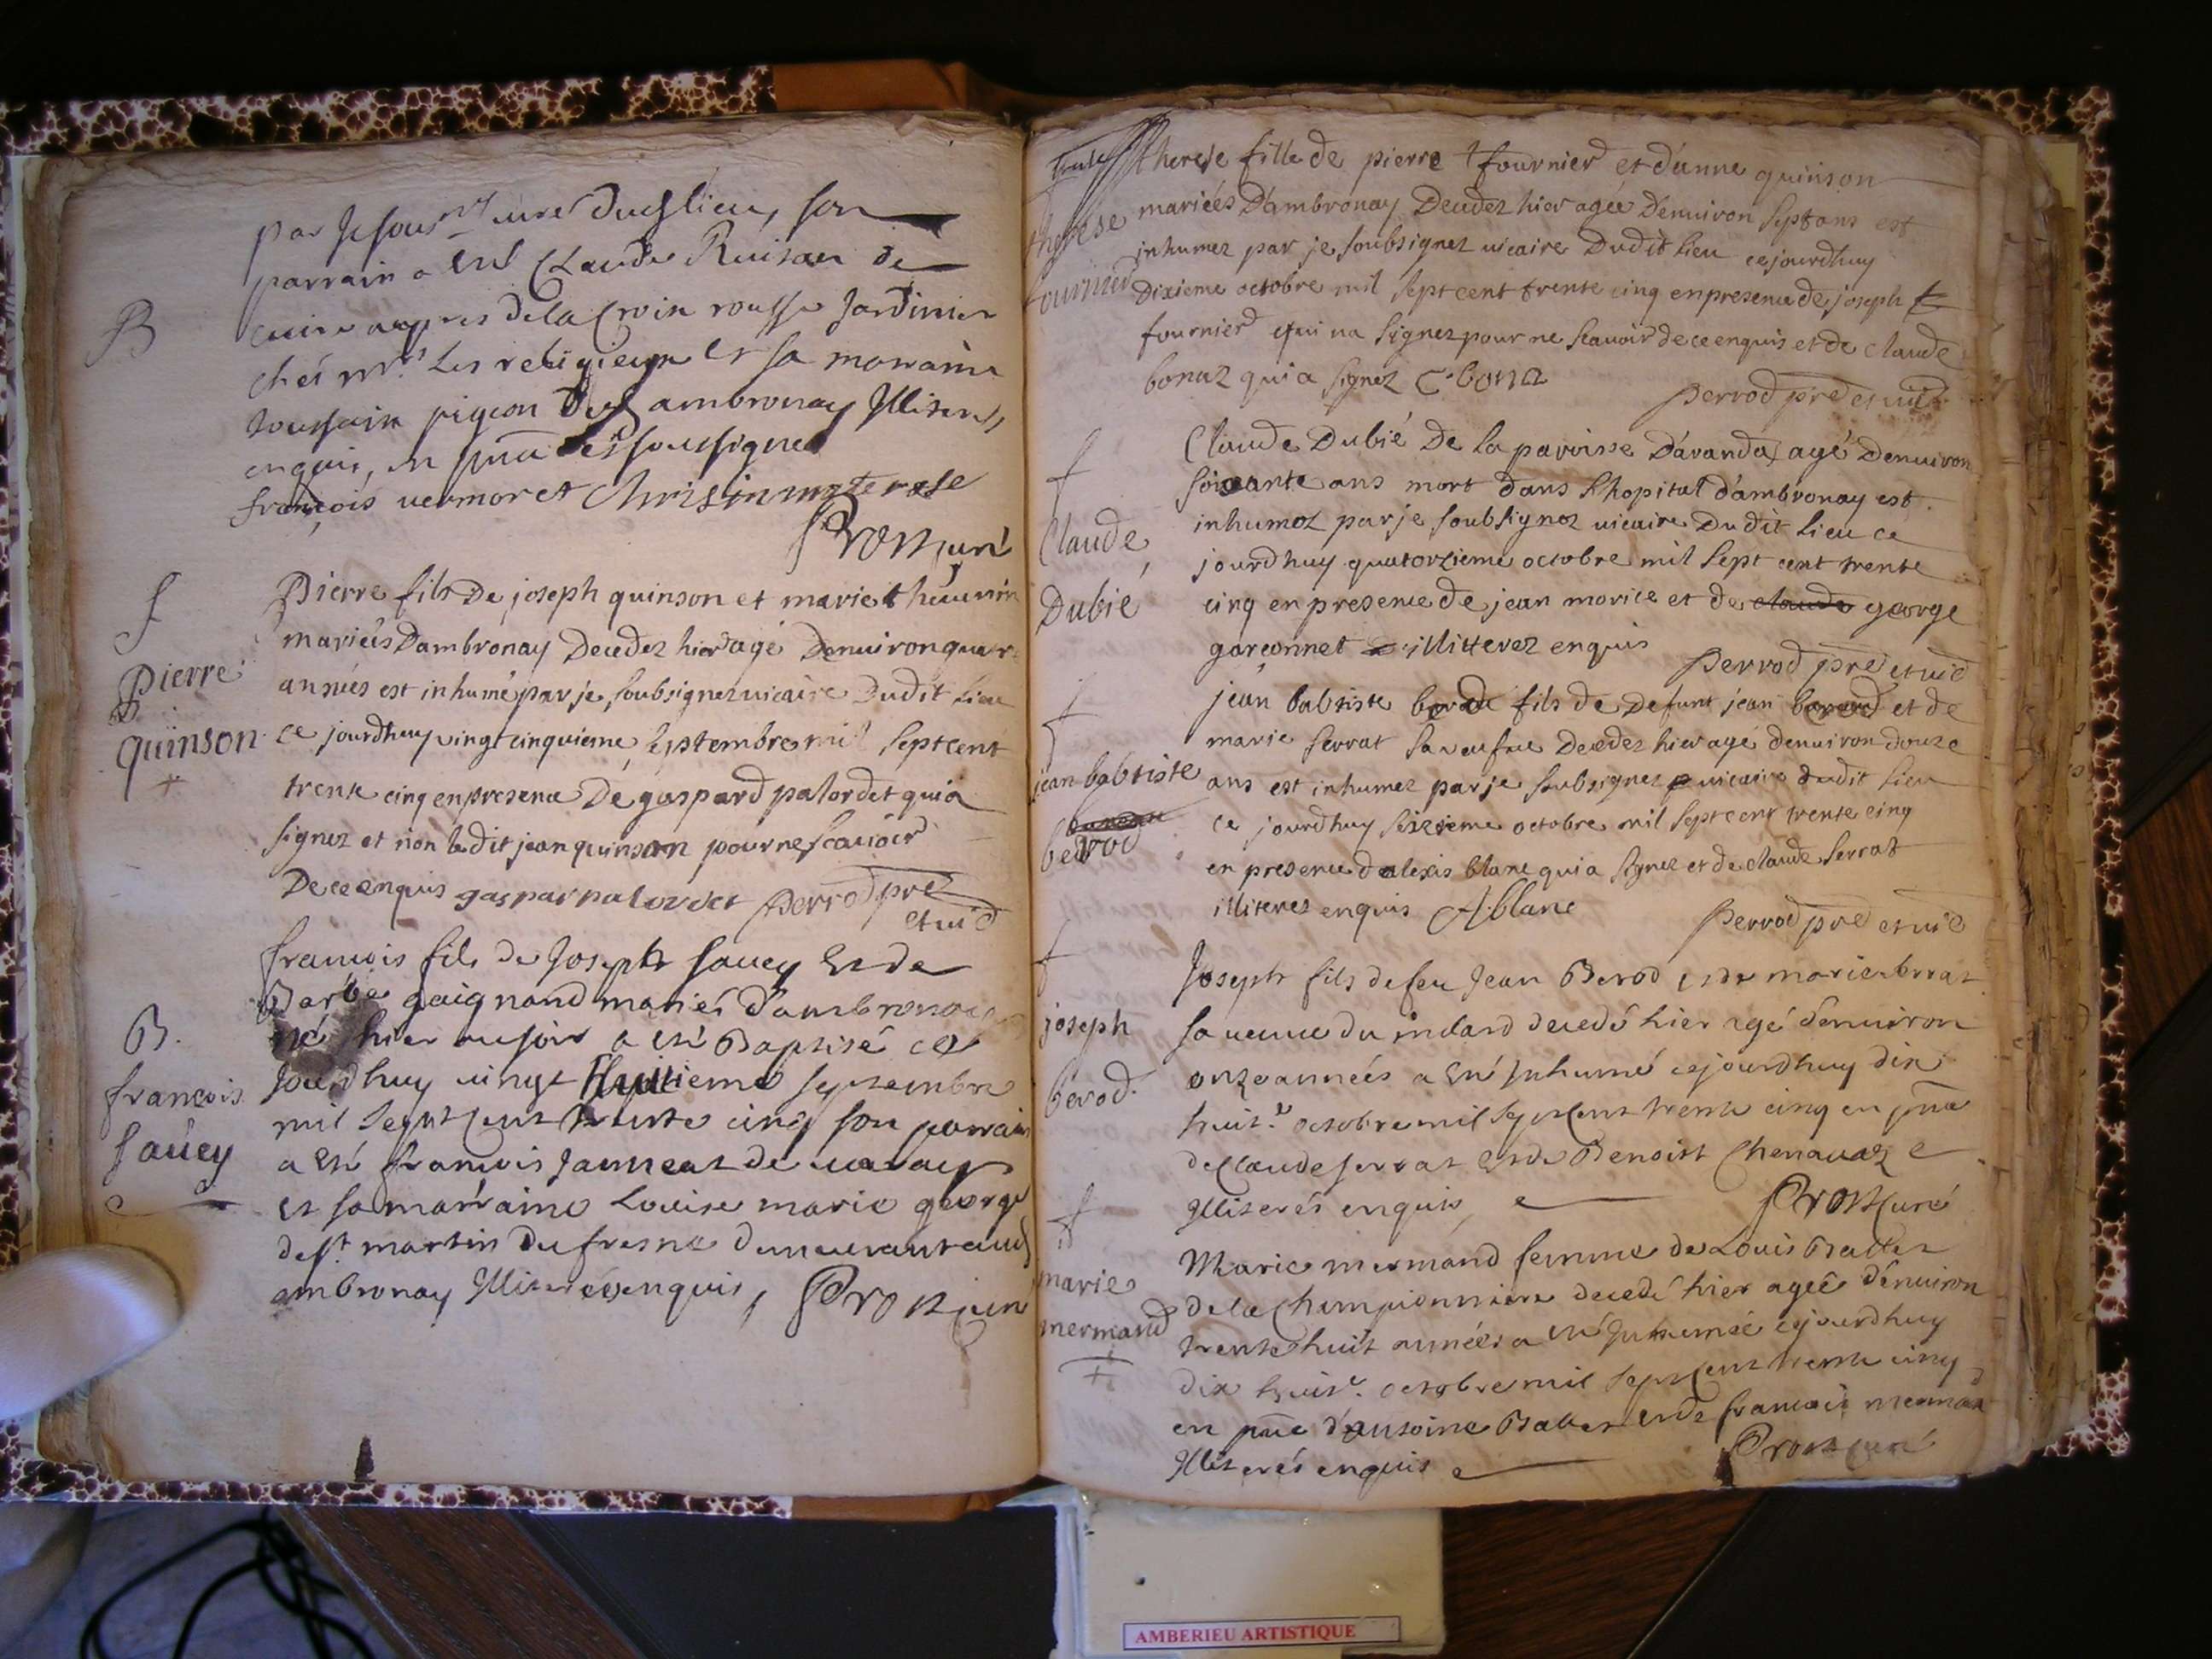 par Je sous.né curé dud lieu, son
parrain a esté Claude
cuire aupres de la Croix rousse Jardinier
chés mrs. les religieux et sa marraine
pigeon dud ambronay Illiterés
enquis, en pñce des soussignés
françois vermoret
Prost curé
B
Pierre fils De joseph quinson et marie
mariés Dambronay Decedez hier agé Denuiron quatre
années est inhumé par je soubsignez uicaire Dudit lieu
ce jourdhuy uingt cinquieme septembre mil sept cent
trente cinq en presence De gaspard palordet qui a
signez et non ledit jean quinson pour ne scauoir
De ce enquis gaspar palordet perrod pre
et uic
f
Pierre
quinson
francois fils de Joseph sauey et de
Barbe gaignand mariés d'ambronay
né hier au soir a esté Baptisé ce
Jourdhuy uingt huitieme septembre
mil sept cent trente cinq son parrain
a esté francois Janneat de uaray
et sa marraine Louise marie george
de st martin du fresne demeurant aud
ambronay Illiterés enquis, Prost curé
B.
francois
sauey
therese fille de pierre fournier et d'anne quinson
mariées D'ambronay Decedez hier agée Denuiron sept ans est
inhumez par je soubsignez uicaire Dudit lieu cejourdhuy
Dixieme octobre mil sept cent trente cinq en presence de joseph
fournier qui na signez pour ne scauoir de ce enquis et de claude
bonaz qui a signez C. bona
perrod pre et uic
therese
fournier
Claude Dubié De la paroisse D'aranda, agé Denuiron
soixante ans mort dans l'hopital d'ambronay est
inhumez par je soubsignez uicaire Dudit lieu ce
jourdhuy quatorzieme octobre mil sept cent trente
cinq en presence de jean morice et de claude george
garçonnet illitterez enquis
perrod pre et uic
f
Claude
Dubié
jean babtiste berod fils de Defunt jean berod et de
marie serrat sa ueufue Decedez hier agé denuiron douze
ans est inhumez par je subsignez uicaire dudit lieu
ce jourdhuy seizieme octobre mil sept cent trente cinq
en presence d alexis blanc qui a signez et de claude serrat
illiterez enquis A. blanc perrod pre et uic
f
jean babtiste
berod
Joseph fils de feu Jean Berod et de marie serrat
sa ueuue du indard decedé hier agé d'enuiron
onze années a esté Inhumé cejourdhuy dix
huite octobre mil sept cent trente cinq en pñce
de Claude serrat et de Benoist Chenauaz
Illiterés enquis, Prost curé
f
joseph
berod.
Marie mermand femme de Louis Ballet
de la Championniere decedé hier agée d'enuiron
trente huit années a esté Inhumée cejourdhuy
dix huite. octobre mil sept cent trente cinq
en pñce d'antoine Ballet et de francois mermand
Illiterés enquis Prost curé
f
marie
mermand
AMBERIEU ARTISTIQUE